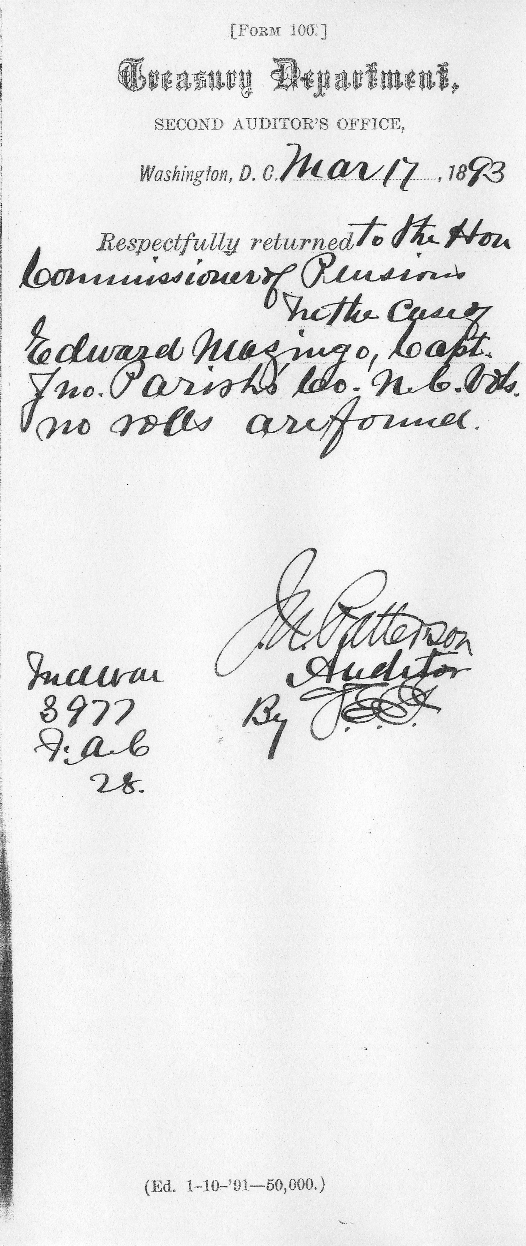 [FORM 100.]
Treasury Department,
SECOND AUDITOR'S OFFICE,
Washington, D. C. Mar 17, 1893
Respectfully returned to the Hon
Commissioner of Pensions
In the case of
Edward Mozingo, Capt.
Jno. Parish's Co. N.C. Vols.
no rolls are found.
J.N. Patterson
Auditor
By
Ind War
3977
F.a.C
28.
(Ed. 1-10-'91—50,000.)